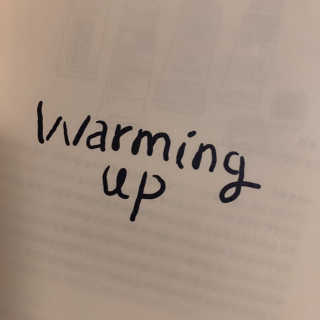 Warming
up